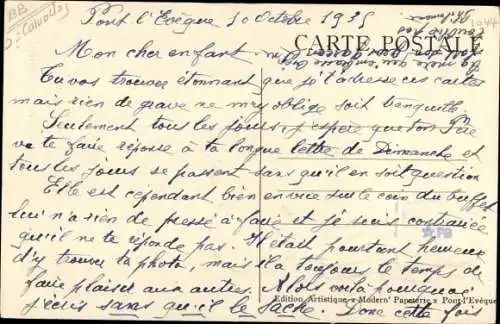 Pont l'Evêque 30 Octobre 1935
CARTE POSTALE
Mon cher enfant
Tu vas trouver étonnant que je t'adresse ces cartes
mais rien de grave ne m'y oblige soit tranquille.
Seulement tous les jours j'espère que ton Père
va te faire réponse à ta longue lettre de Dimanche et
tous les jours se passent sans qu'il en soit question
Elle est cependant bien en vue sur le coin du buffet
lui n'a rien de pressé à faire et je suis contrariée
qu'il ne te réponde pas. Il était pourtant heureux
d'y trouver ta photo, mais il a toujours le temps de
faire plaisir aux autres. Alors voilà pourquoi
j'écris sans qu'il le sache. Donc cette fois
Edition Artistique « Modern' Papeterie » Pont-l'Evêque
BB
D: Calvados
1044